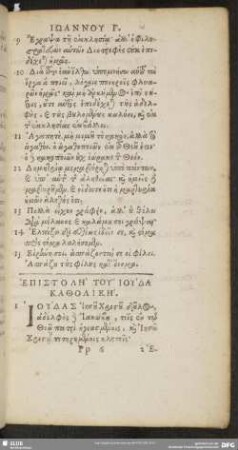 ΙΩΑΝΝΟΥ Γ.
9 Ἔγραψα τῇ ἐκκλησίᾳ· ἀλλ' ὁ φιλο-
αὐτῶν Διοτρεφὴς οὐκ ἐπι-
δέχεται ἡμᾶς.
10 Διὰ τοῦτο ἐὰν ἔλθω, ὑπομνήσω αὐτοῦ τὰ
ἔργα ἃ ποιεῖ, λόγοις πονηροῖς φλυα-
ρῶν ἡμᾶς· καὶ μὴ ἀρκούμενος ἐπὶ τού-
τοις, οὔτε αὐτὸς ἐπιδέχεται τοὺς ἀδελ-
φοὺς, καὶ τοὺς βουλομένους κωλύει, καὶ ἐκ
τῆς ἐκκλησίας ἐκβάλλει.
11 Ἀγαπητὲ, μὴ μιμοῦ τὸ κακὸν, ἀλλὰ τὸ
ἀγαθόν. ὁ ἀγαθοποιῶν ἐκ τοῦ Θεοῦ ἐστιν·
ὁ κακοποιῶν οὐχ ἑώρακε τὸν Θεόν.
12 Δημητρίῳ μεμαρτύρηται ὑπὸ πάντων,
καὶ ὑπ' αὐτῆς τῆς ἀληθείας· καὶ ἡμεῖς δὲ
μαρτυροῦμεν, καὶ οἴδατε ὅτι ἡ μαρτυρία
ἡμῶν ἀληθής ἐστι.
13 Πολλὰ εἶχον γράφειν, ἀλλ' οὐ θέλω
διὰ μέλανος καὶ καλάμου σοι γράψαι·
14 Ἐλπίζω δὲ εὐθέως ἰδεῖν σε, καὶ στόμα
πρὸς στόμα λαλήσομεν.
15 Εἰρήνη σοι. ἀσπάζονταί σε οἱ φίλοι.
Ἀσπάζου τοὺς φίλους κατ' ὄνομα.
ΕΠΙΣΤΟΛΗ ΤΟΥ ΙΟΥΔΑ
ΚΑΘΟΛΙΚΗ.
1 ΙΟΥΔΑΣ Ἰησοῦ Χριστοῦ δοῦλος,
ἀδελφὸς δὲ Ἰακώβου, τοῖς ἐν
Θεῷ πατρὶ ἡγιασμένοις, καὶ Ἰησοῦ
Χριστῷ τετηρημένοις κλητοῖς·